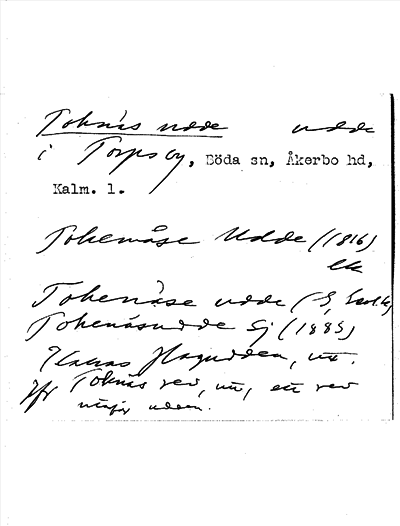 Toknäs udde udde
i Torps by, Böda sn, Åkerbo hd,
Kalm. l.
Tokenäse Udde (1816)
lk
Tokenäse udde (S,
Tokenäsudde Sj (1885)
Kallas Hagudden, utt.
Jfr Toknäs rev, utt, ett rev
utanför udden.